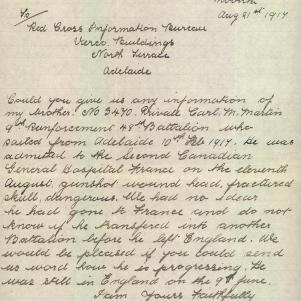 Aug 21st 1917
To/
Red Cross Information Bureau
Verco Buildings
North Terrace
Adelaide
Could you give us any information of
my brother. No 3470. Private Carl. M. Martin
9th Reinforcement 48th Battalion who
sailed from Adelaide 10th Feb 1917. He was
admitted to the Second Canadian
General Hospital France on the eleventh
August, gunshot wound head, fractured
skull, dangerous. We had no idear
he had gone to France and do not
know if he transfered into another
Battalion before he left England. We
would be pleased if you could send
us word how he is progressing. He
was still in England on the 9th June.
I am Yours Faithfully